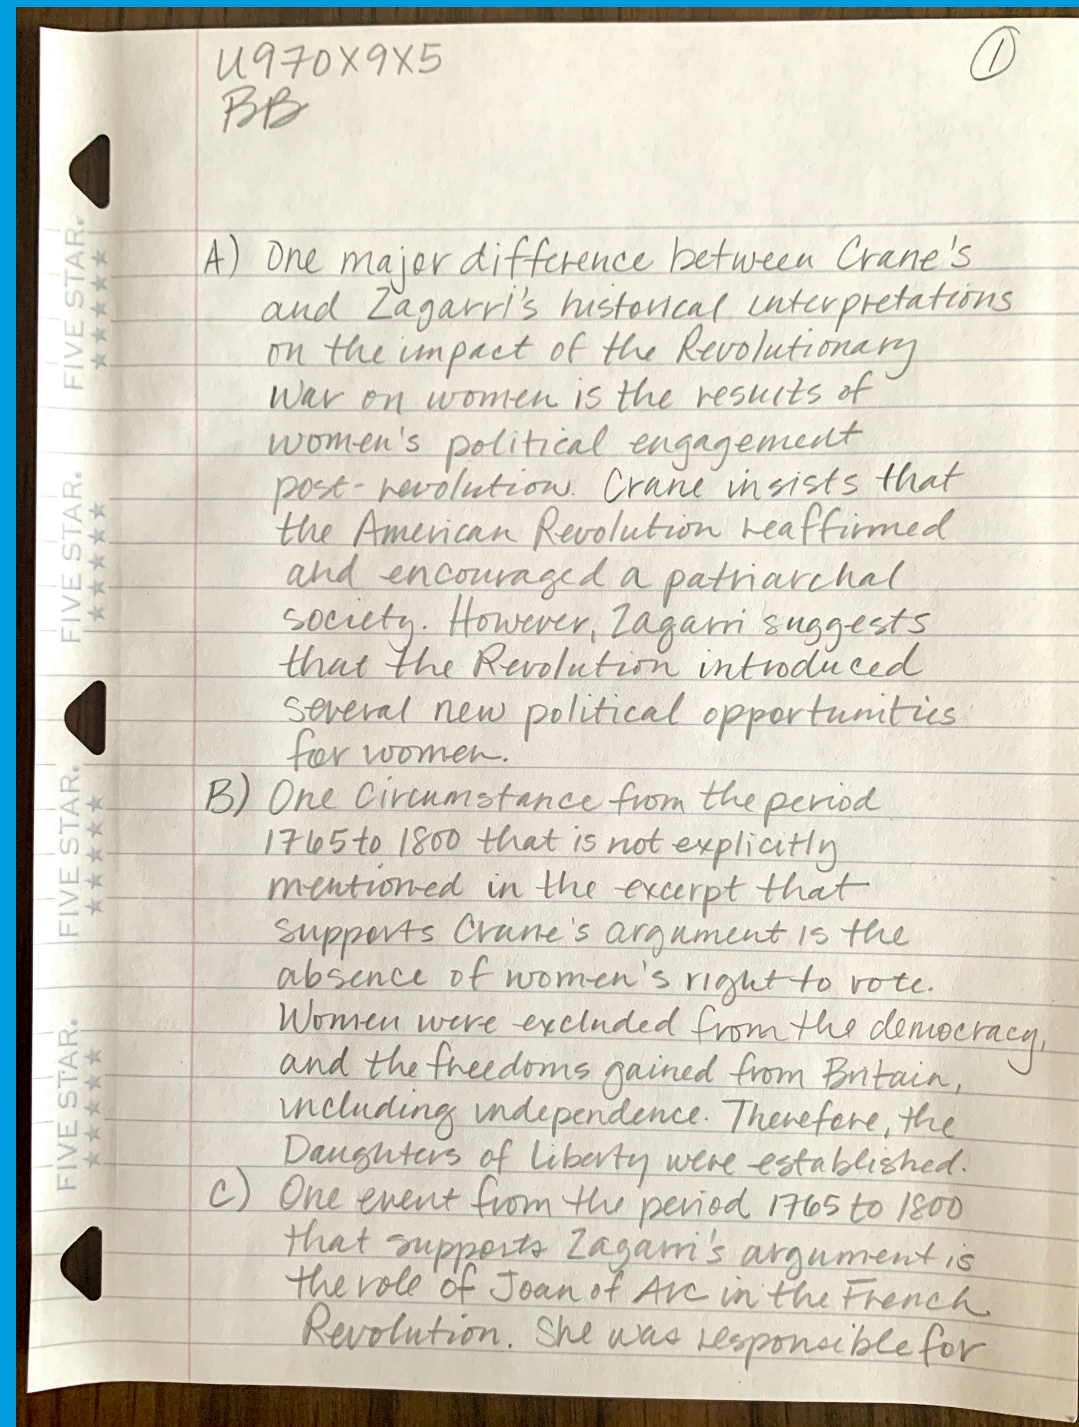 U970X9X5
BB
1
A) One major difference between Crane's
and Zagarri's historical interpretations
on the impact of the Revolutionary
War on women is the results of
women's political engagement
post-revolution. Crane insists that
the American Revolution reaffirmed
and encouraged a patriarchal
society. However, Zagarri suggests
that the Revolution introduced
several new political opportunities
for women.
B) One Circumstance from the period
1765 to 1800 that is not explicitly
mentioned in the excerpt that
supports Crane's argument is the
absence of women's right to vote.
Women were excluded from the democracy,
and the freedoms gained from Britain,
including independence. Therefore, the
Daughters of Liberty were established.
C) One event from the period 1765 to 1800
that supports Zagarri's argument is
the role of Joan of Arc in the French
Revolution. She was responsible for
FIVE STAR.
FIVE STAR.
FIVE STAR.
FIVE STAR.